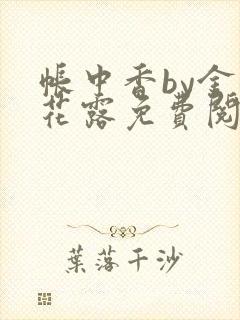 帳中香by金
花露免費閱
葉落千沙